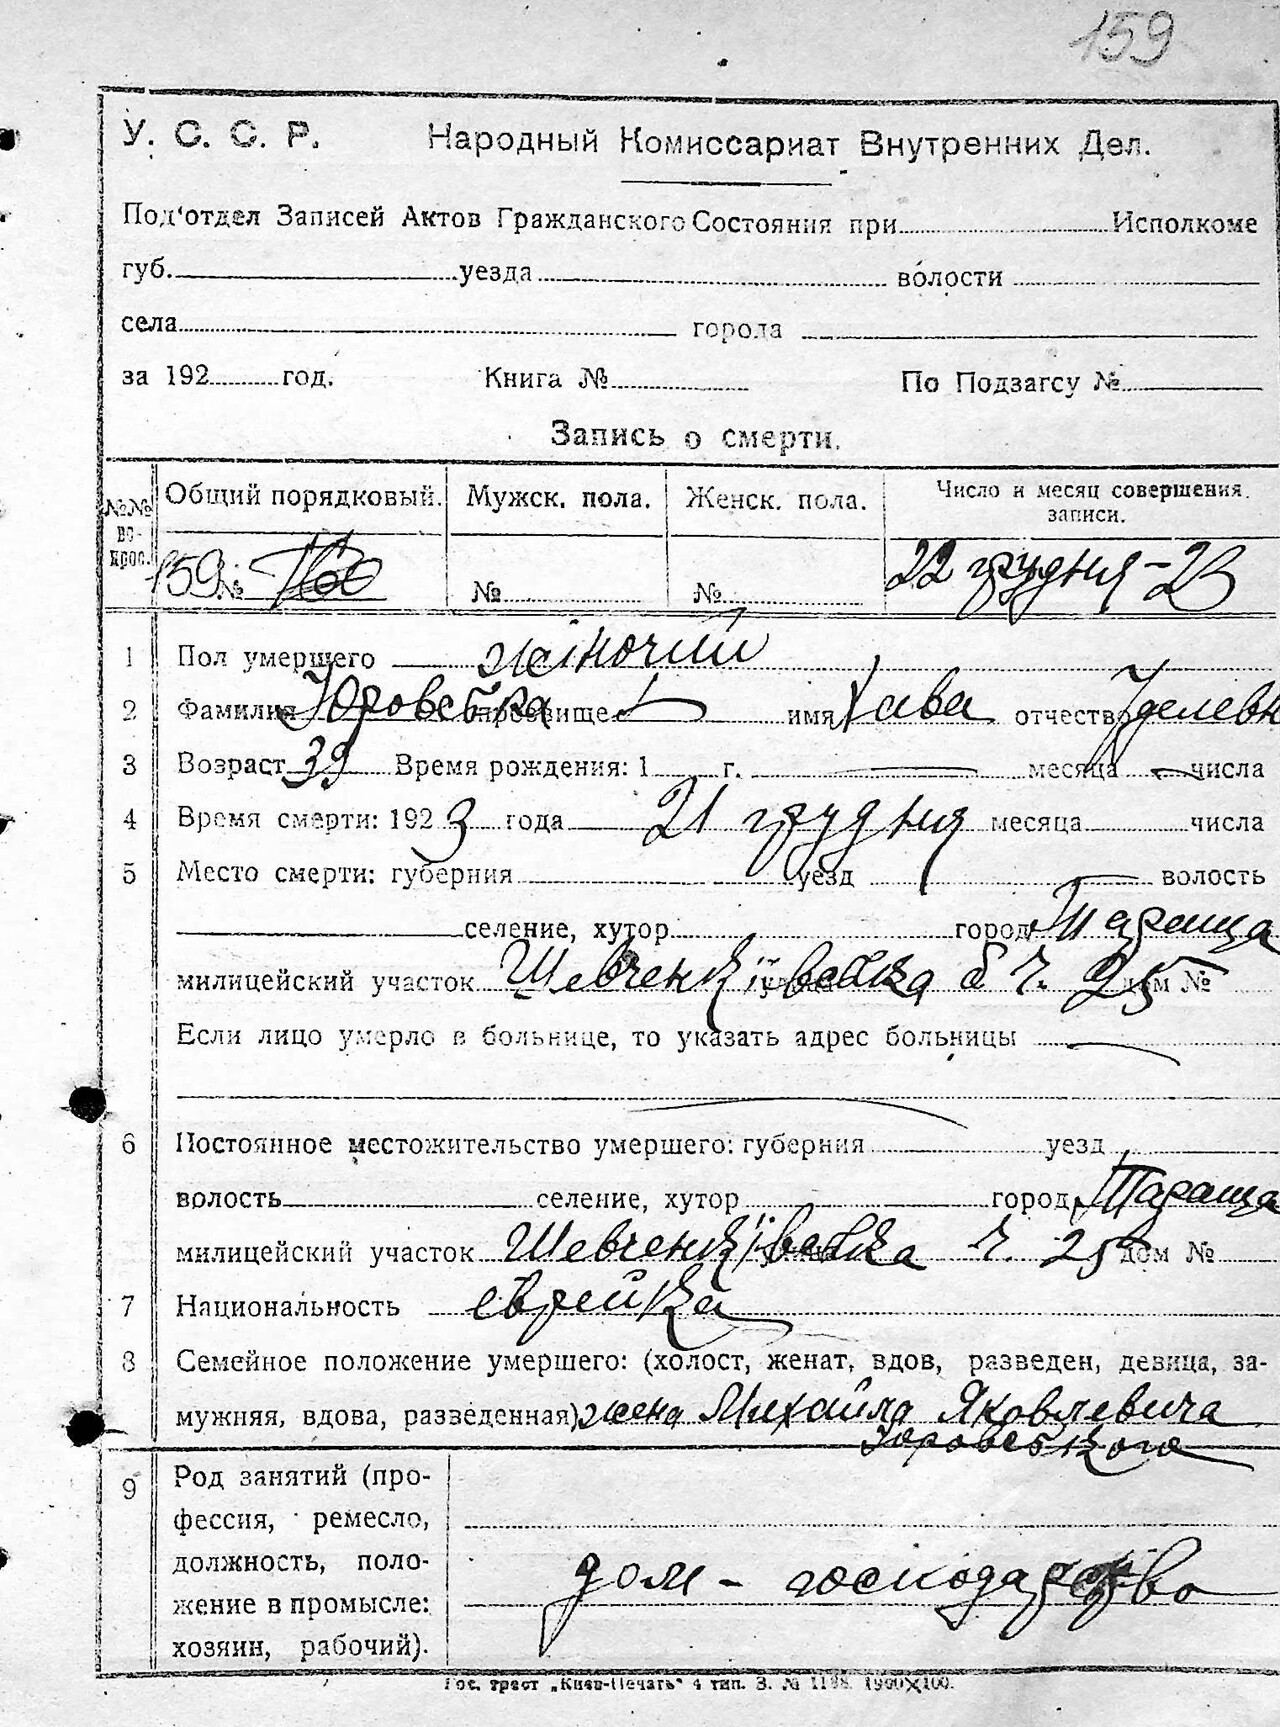 159
У. С. С. Р. Народный Комиссариат Внутренних Дел.
Под‘отдел Записей Актов Гражданского Состояния при Исполкоме
губ. уезда волости
села города
за 192 год. Книга № По Подзагсу №
Запись о смерти.
№№ во- прос. Общий порядковый. Мужск. пола. Женск. пола. Число и месяц совершения записи.
159 № 160 № № 22 грудня - 23
1 Пол умершего жіночий
2 Фамилия Юровська прозвище имя Хава отчество Уделевн
3 Возраст 39 Время рождения: 1 г. месяца числа
4 Время смерти: 1923 года 21 грудня месяца числа
5 Место смерти: губерния уезд волость
селение, хутор город Тараща
милицейский участок Шевченківська б ч. 25 дом №
Если лицо умерло в больнице, то указать адрес больницы
6 Постоянное местожительство умершего: губерния уезд
волость селение, хутор город Тараща
милицейский участок Шевченківська ч. 25 дом №
7 Национальность еврейка
8 Семейное положение умершего: (холост, женат, вдов, разведен, девица, за-
мужняя, вдова, разведенная) жена Михайла Яковлевича
Юровського
9 Род занятий (про-
фессия, ремесло,
должность, поло-
жение в промысле:
хозяин, рабочий).
дом - господарство
Гос. трест „Киев-Печать“ 4 тип. З. № 1198. 1900×100.